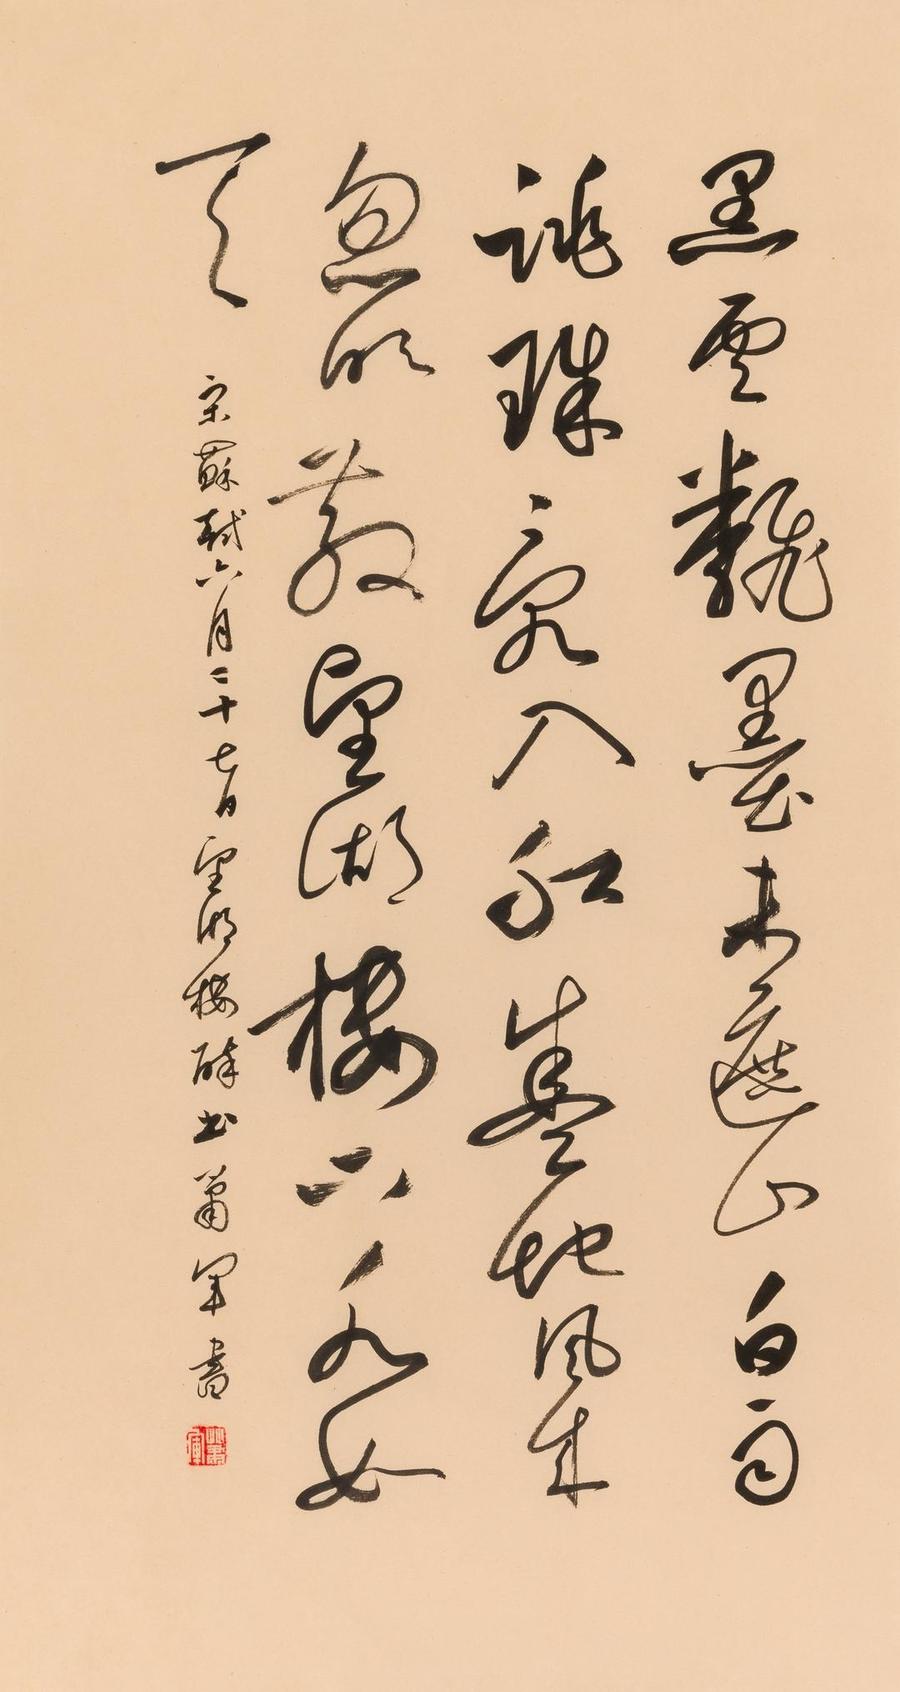 黑雲飜墨未遮山白雨
跳珠亂入舡卷地風來
忽吹散望湖樓下水如
天
宋蘇軾六月二十七日望湖樓醉書蕭軍書
蕭軍